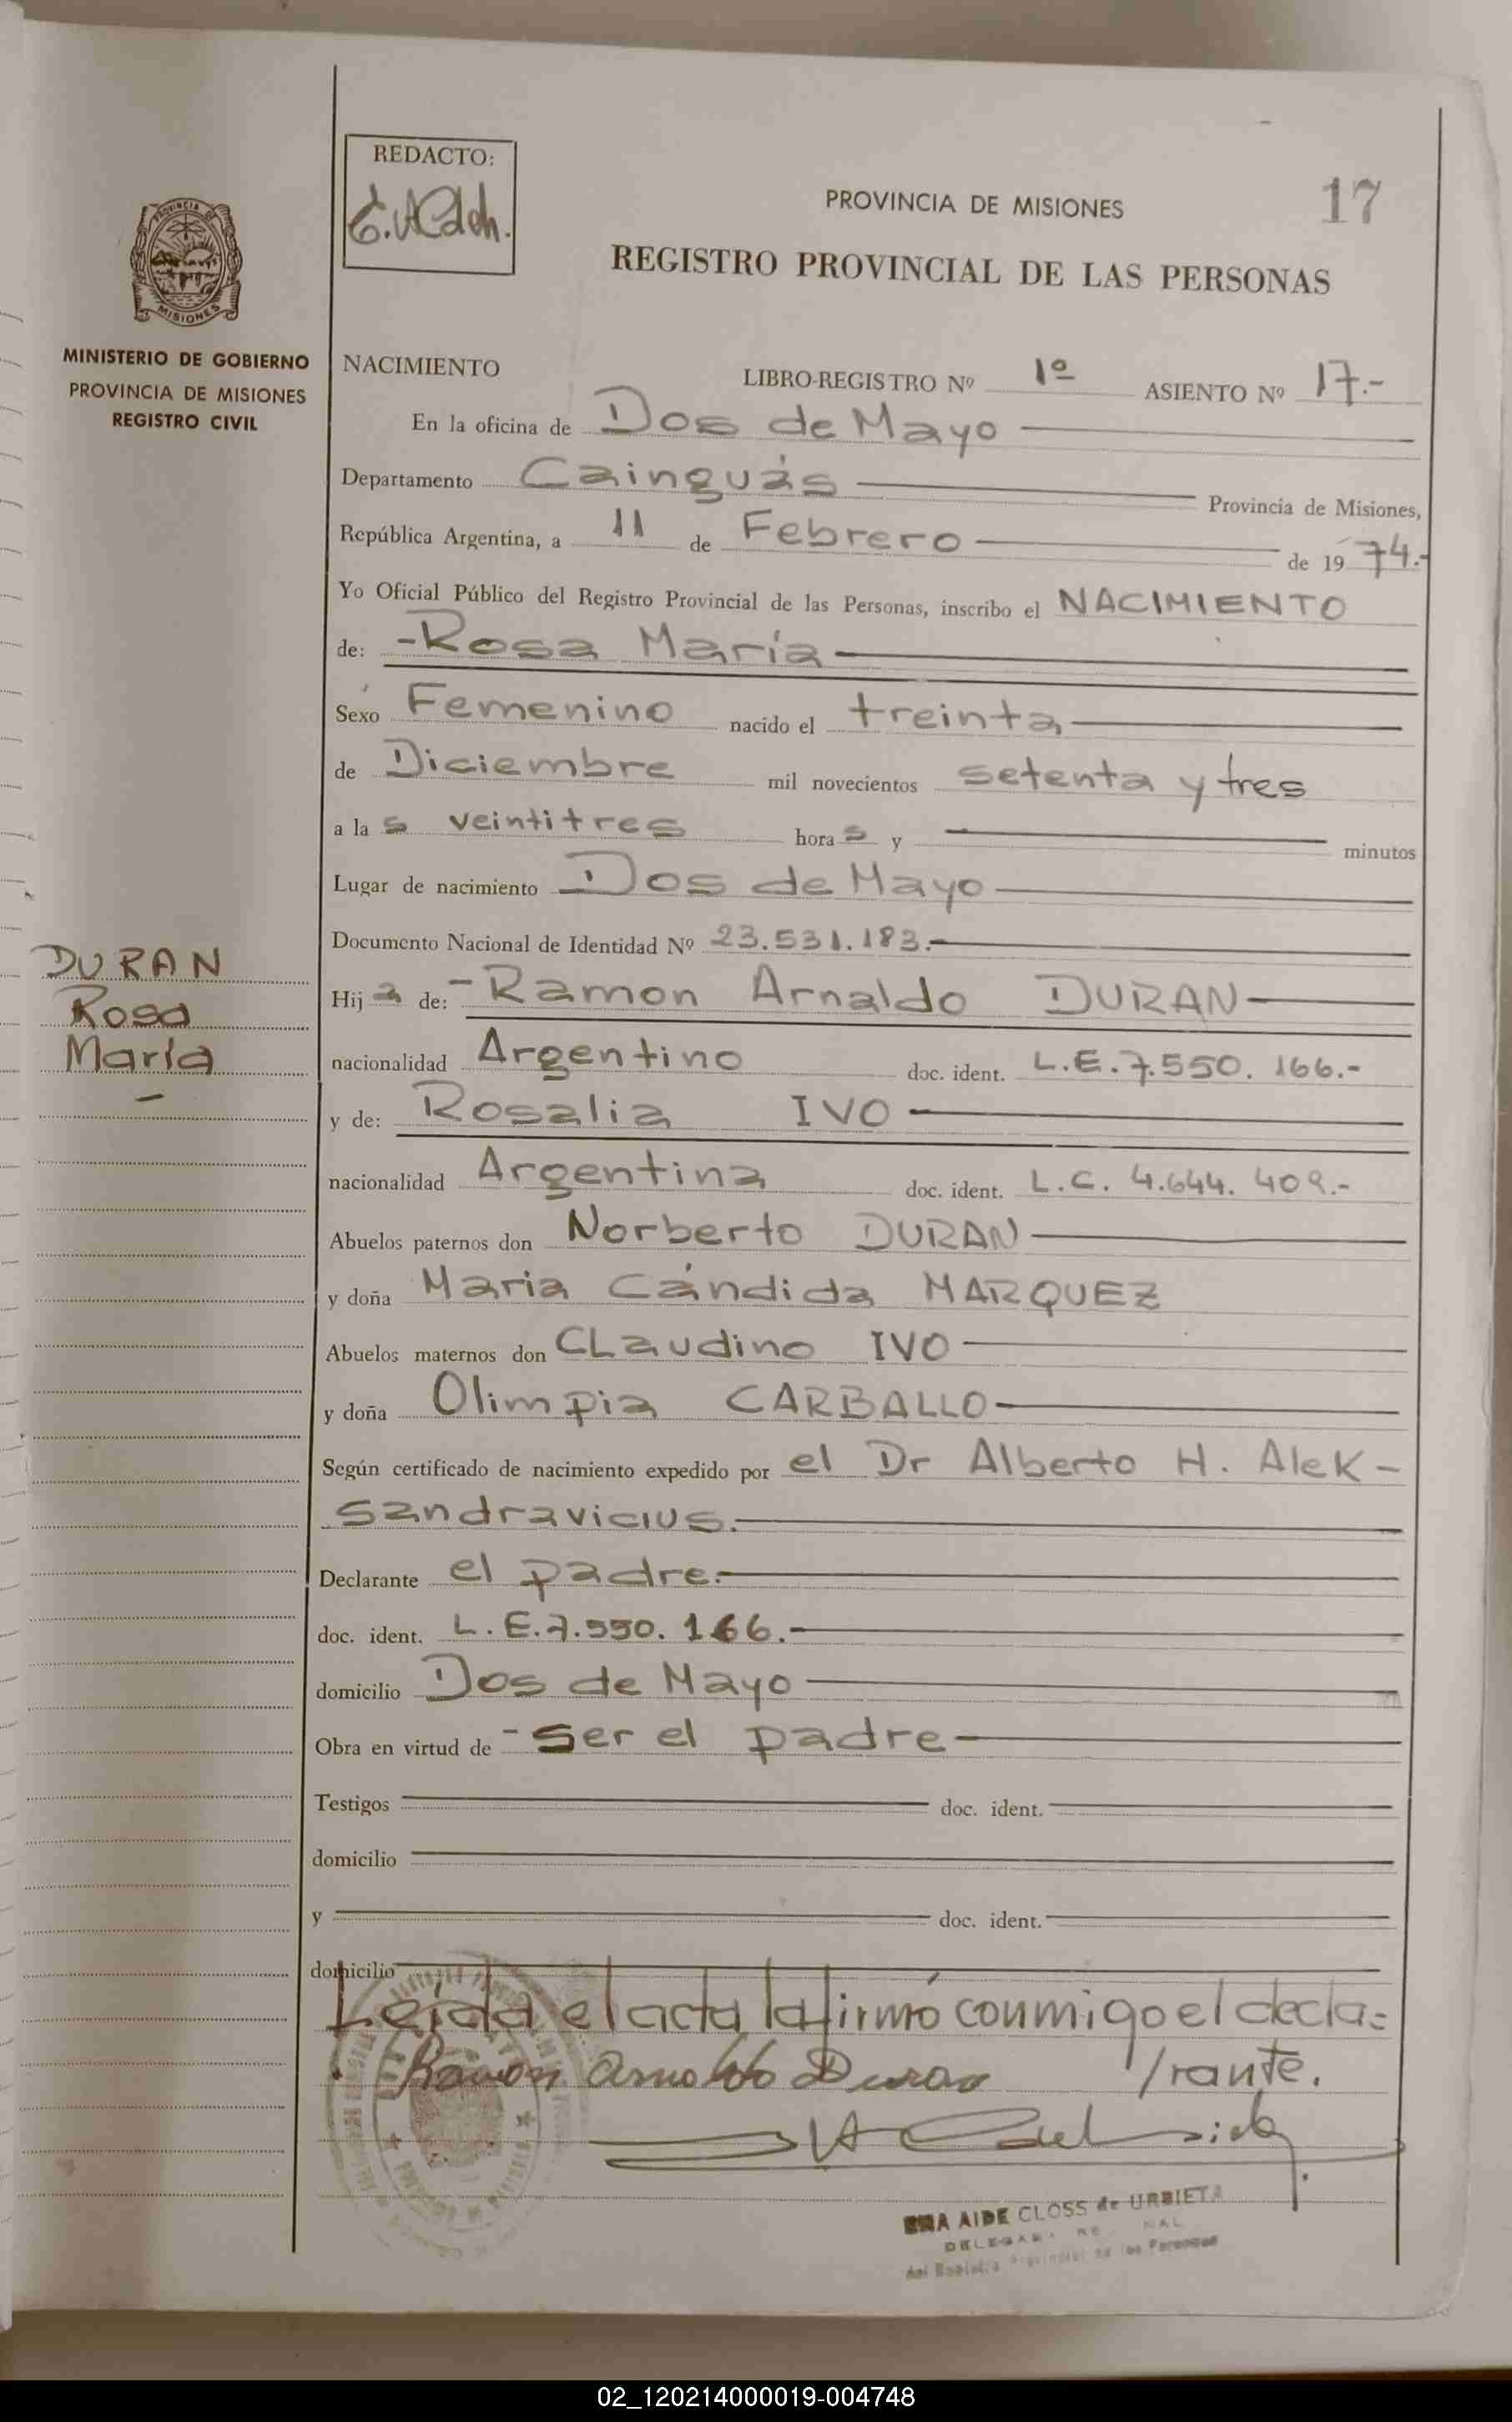 REDACTO:
PROVINCIA DE MISIONES
17
REGISTRO PROVINCIAL DE LAS PERSONAS
PROVINCIA DE
MISIONES
MINISTERIO DE GOBIERNO
PROVINCIA DE MISIONES
REGISTRO CIVIL
NACIMIENTO
LIBRO-REGISTRO Nº 1º ASIENTO Nº 17.-
En la oficina de Dos de Mayo
Departamento Cainguás Provincia de Misiones,
República Argentina, a 11 de Febrero de 1974.-
Yo Oficial Público del Registro Provincial de las Personas, inscribo el NACIMIENTO
de: -Rosa María
Sexo Femenino nacido el treinta
de Diciembre mil novecientos setenta y tres
a las veintitres horas y minutos
Lugar de nacimiento Dos de Mayo
Documento Nacional de Identidad Nº 23.531.183.-
DURAN
Rosa
María
-
Hija de: -Ramon Arnaldo DURAN
nacionalidad Argentino doc. ident. L.E.7.550.166.-
y de: Rosalia IVO
nacionalidad Argentina doc. ident. L.C. 4.644.409.-
Abuelos paternos don Norberto DURAN
y doña Maria Cándida MARQUEZ
Abuelos maternos don CLaudino IVO
y doña Olimpia CARBALLO
Según certificado de nacimiento expedido por el Dr Alberto H. Alek-
sandravicius.
Declarante el padre.
doc. ident. L.E.7.550.166.-
domicilio Dos de Mayo
Obra en virtud de -Ser el padre
Testigos doc. ident.
domicilio
y doc. ident.
domicilio
Leída el acta la firmó conmigo el decla=
/rante.
Ramon Arnaldo Duran
AIDE CLOSS de URBIETA
del Registro Provincial de las Personas
02_120214000019-004748